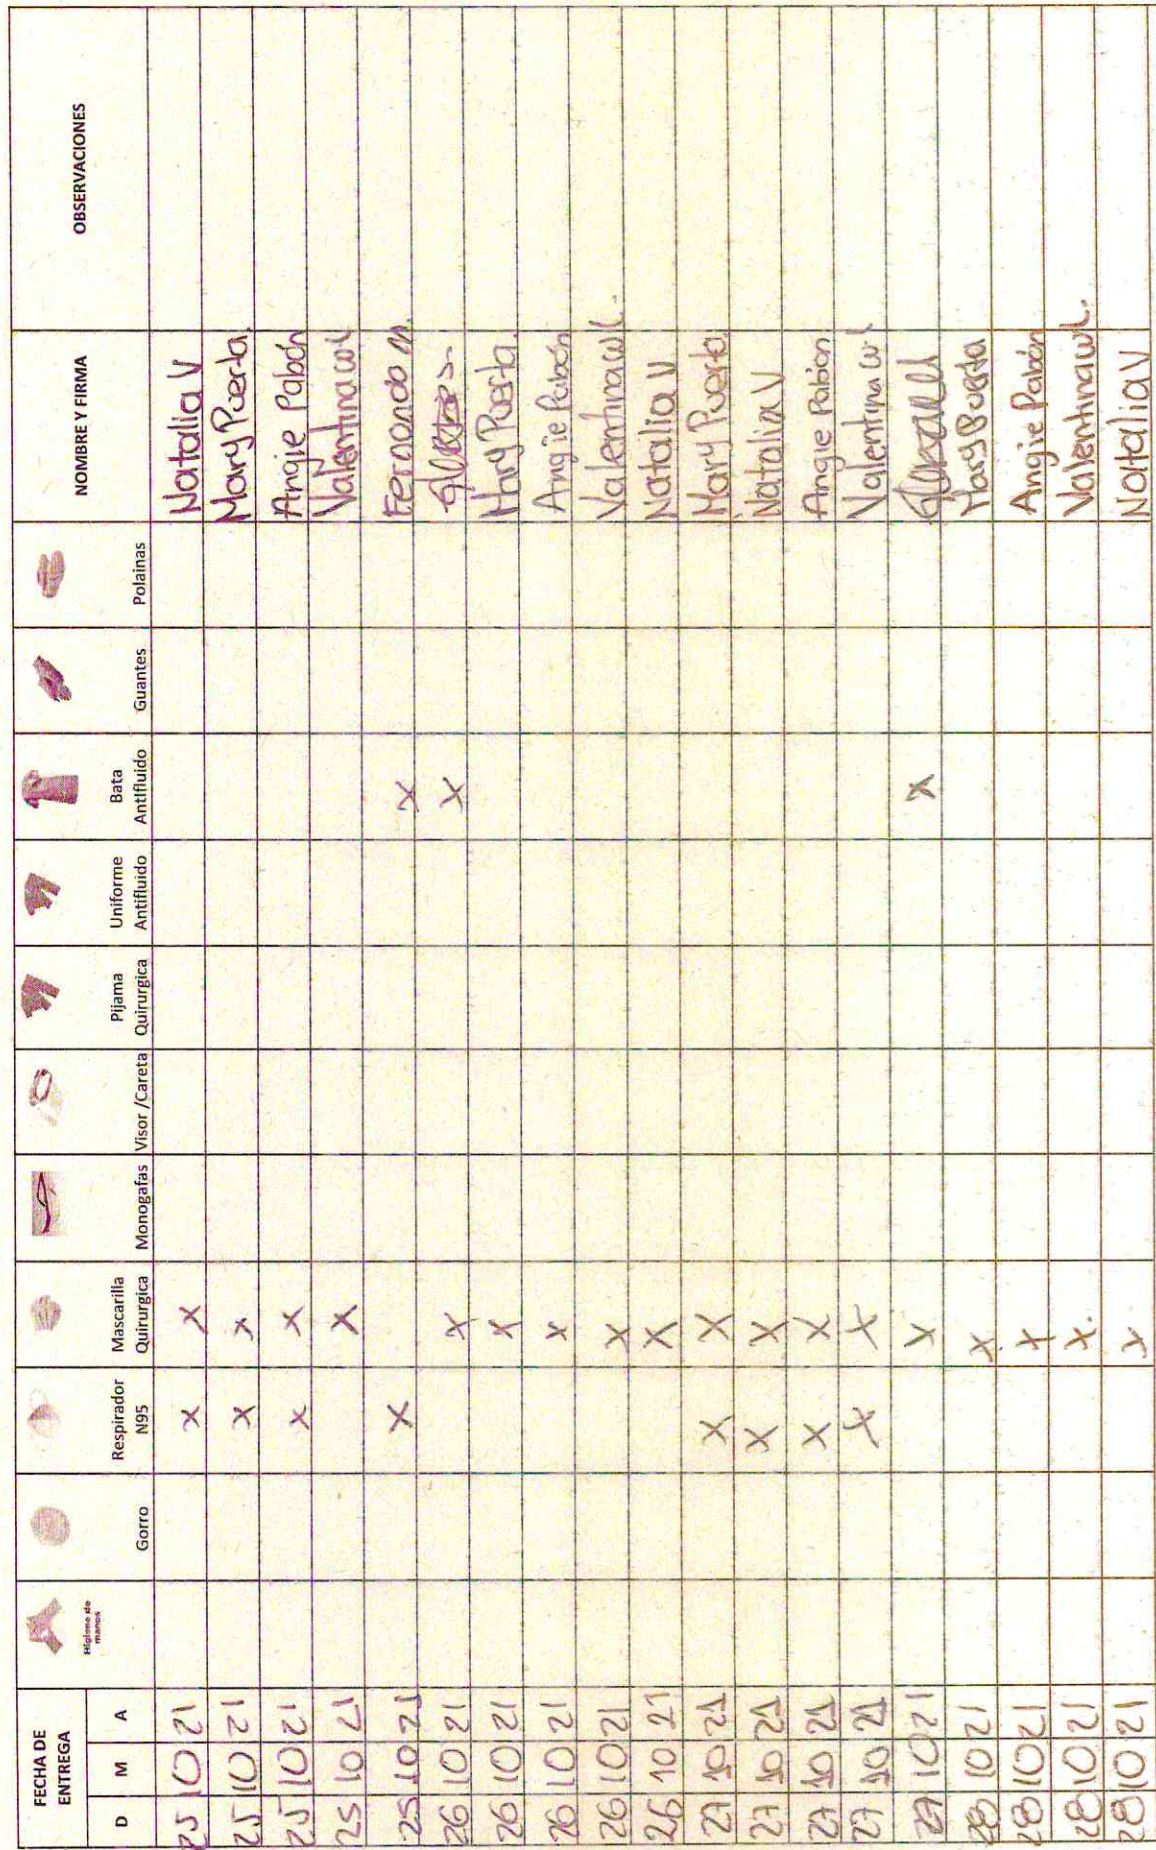 FECHA DE ENTREGA
D M A
Higiene de manos
Gorro
Respirador N95
Mascarilla Quirurgica
Monogafas
Visor /Careta
Pijama Quirurgica
Uniforme Antifluido
Bata Antifluido
Guantes
Polainas
NOMBRE Y FIRMA
OBSERVACIONES
25 10 21 X X Natalia V
25 10 21 X X Mary Puerta
25 10 21 X X Angie Pabón
25 10 21 X Valentina
25 10 21 X X Fernando M.
26 10 21 X X
26 10 21 X Mary Puerta
26 10 21 X Angie Pabón
26 10 21 X Valentina
26 10 21 X Natalia V
27 10 21 X X Mary Puerta
27 10 21 X X Natalia V
27 10 21 X X Angie Pabón
27 10 21 X X Valentina
27 10 21 X X
28 10 21 X Mary Puerta
28 10 21 X Angie Pabón
28 10 21 X Valentina
28 10 21 X Natalia V